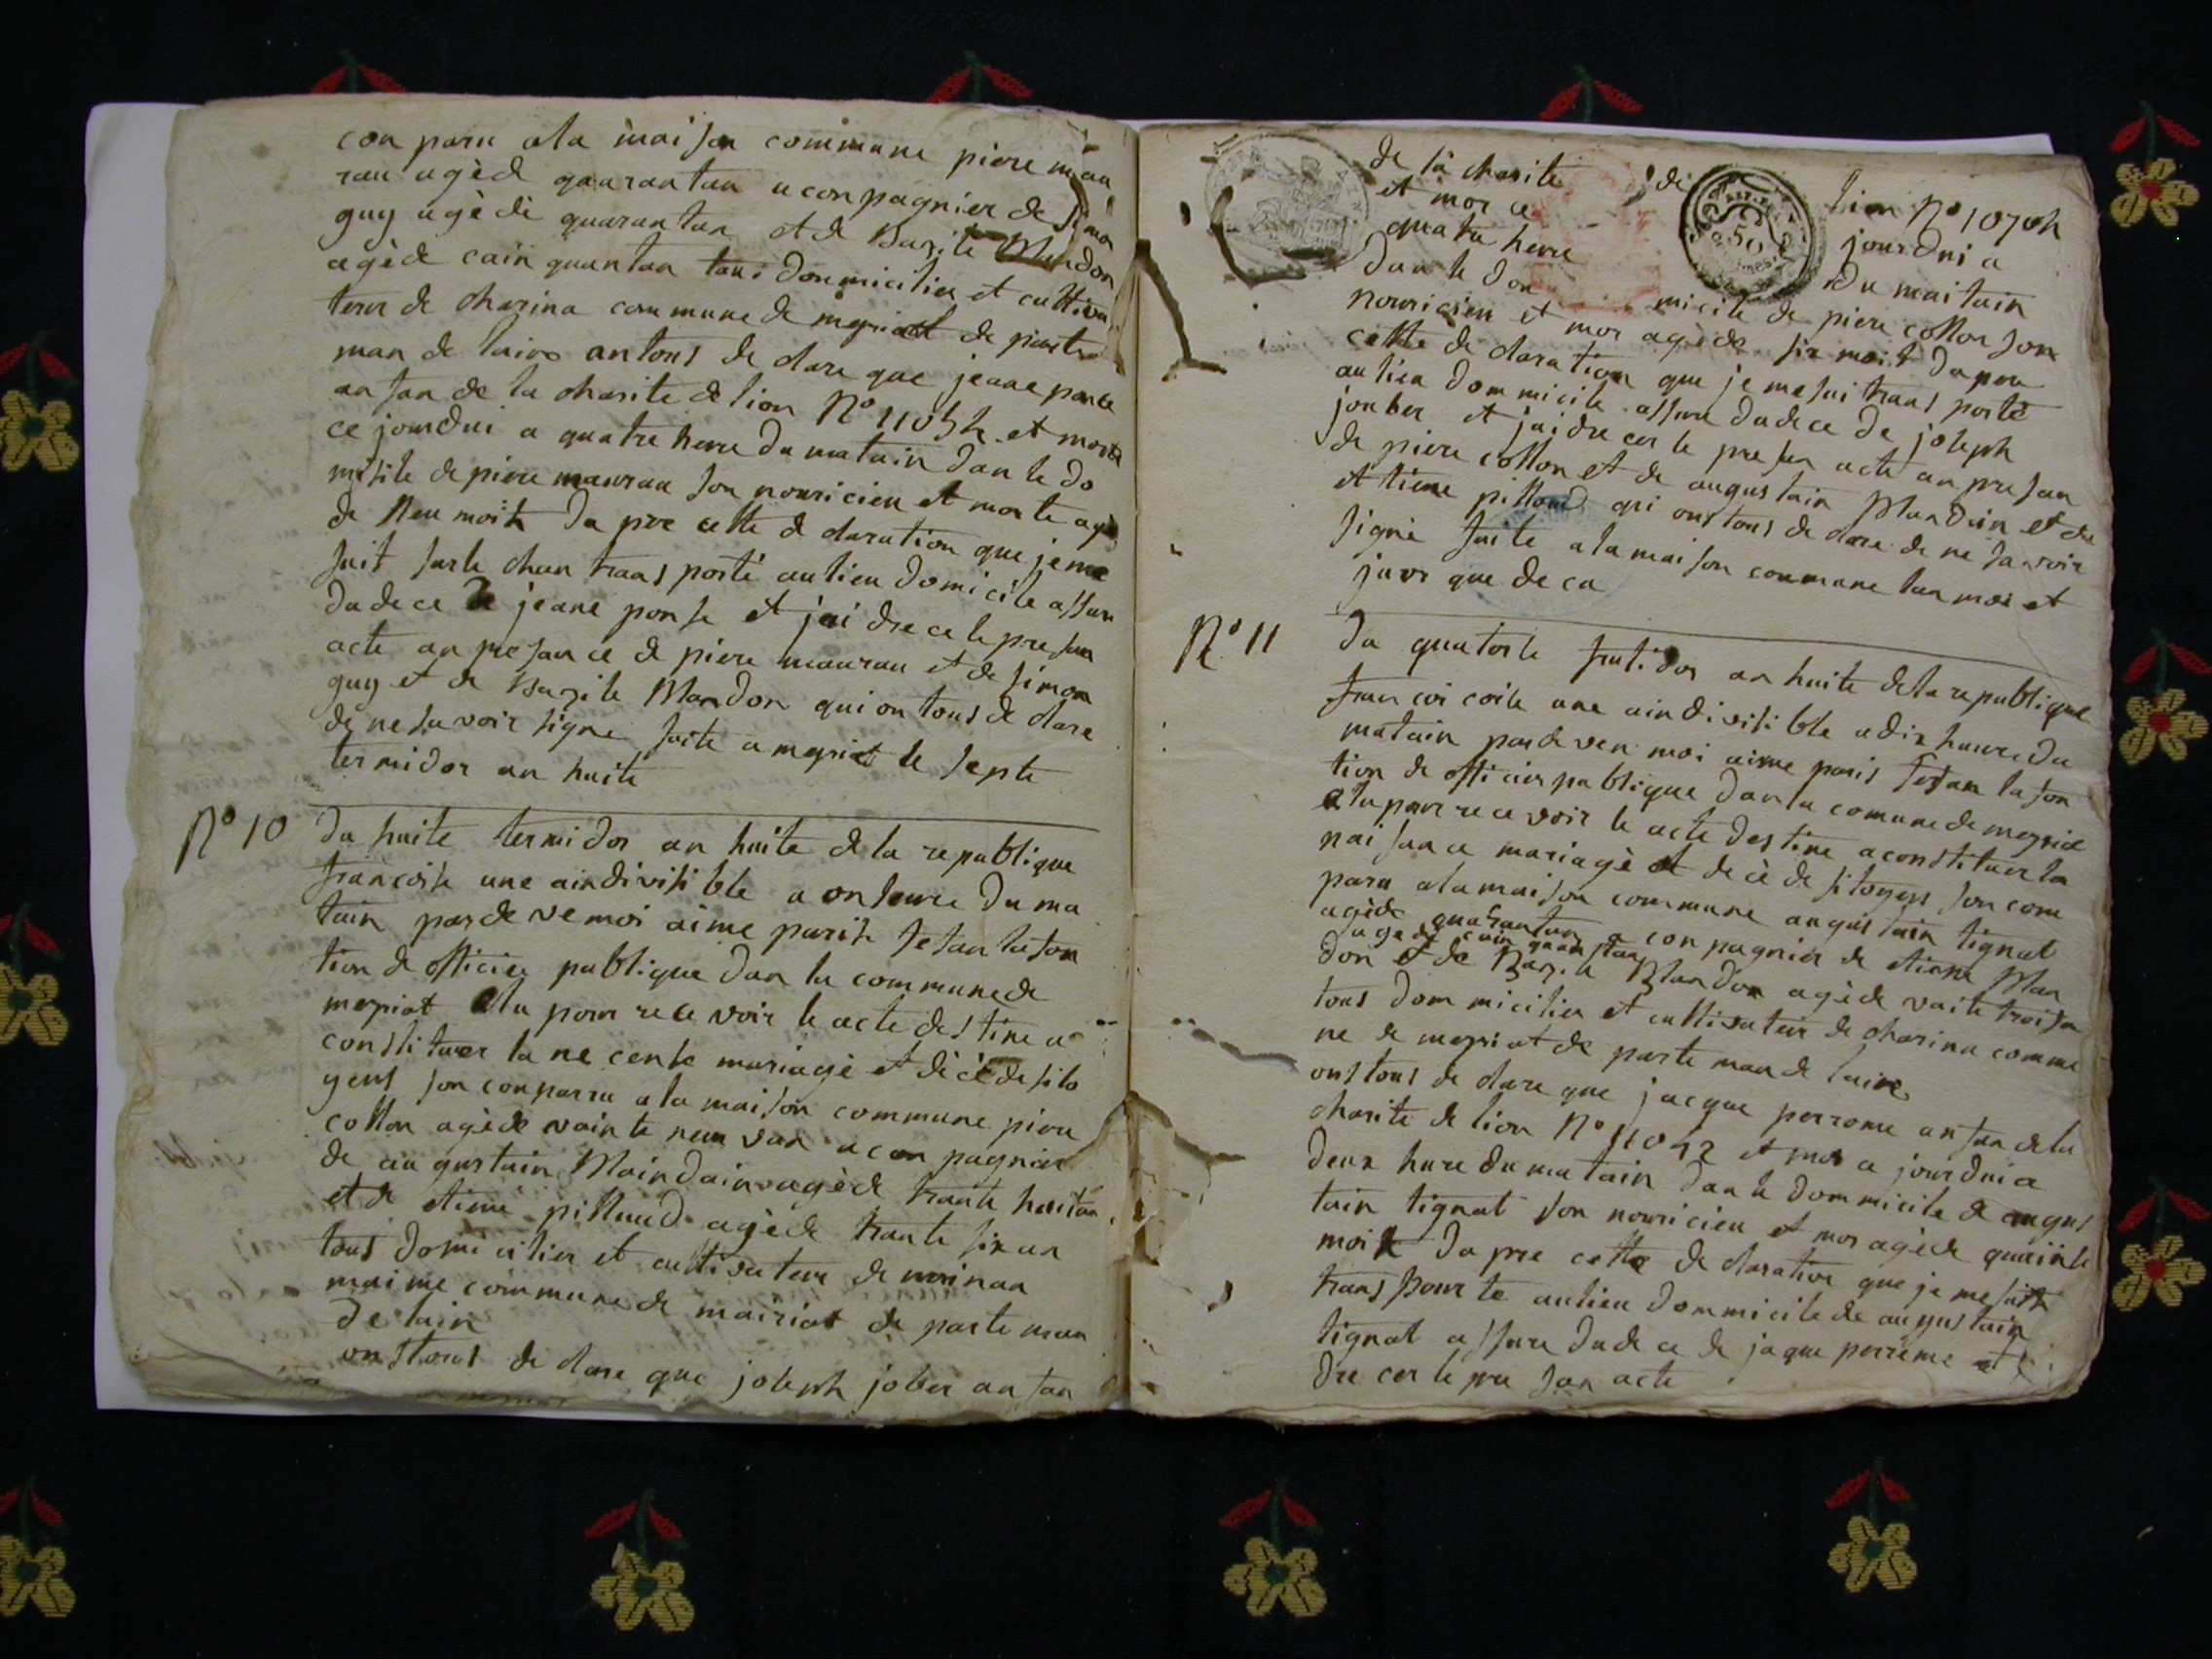 con paru ala maison commune piere mau
rau agède quarantan aconpagnier de simon
guy agède quarantan et de Bazile Mandon
agède cain quantan tous dommicilier et cultiva
teur de charina commune de meyriat de parte
man de lains antous de clare que jeane ponce
anfan de la charite de lion No 11054 et morte
ce jourdui a quatre heure du matain dan le do
misile de piere maurau son nouricien et morte agè
de neu moit da pre cette de claration que jeme
suit sur le chan trans porté au lieu domicile assure
du dece de jeane ponse et jai drece le presan
acte an presance de piere maurau et de simon
guy et de Bazile Mandon qui on tous de clare
de ne savoir signe faite a meyriat le septe
termidor an huite
No 10 du huite termidor an huite de la republique
francoise une aindivisible a onseure du ma
tain parde vemoi aime parit fesan la fon
tion de officier publique dan la commune de
meyriat elu pour recevoir le acte destine a
constituer la ne cence mariagè et décè de sito
yens son conparru a la maison commune piere
collon agède vainte neuvan aconpagnier
de augustain Maindain agède trante huitan
et de etiene pilloud agède trante sixan
tous domicilier et cultivateur de moinan
maime commune de mairiat de parte man
de lain
onstous de clare que joseph jober anfan
de la charite de lion No 1070h
et mor ce jourdui a
quatre heure du maitain
dan le dommicile de piere collon son
nouricien et mor agède six moit dapre
cette de claration que je me sui trans porté
au lieu dommicile assure du dece de joseph
jouber et jai drecer le presan acte an presan
de piere collon et de augustain Mandain et de
ettiene pilloud qui onstous de clare de ne savoir
signé faite a la maison coumune lan moi et
jour que de ca
No 11 du quatorse frutidor an huite de la republique
francoi coise une aindivisible a dix heure du
matain pardeven moi aime paris fesan la fon
tion de officier publique dan la comune de meyriat
elu pour recevoir le acte destine a constituer la
naisance mariagè et decè de sitoyens son com
paru a la maison commune augustain tignat
agède quarantan a conpagnier de etiene Man
agede cain quantan
don et de Bazile Mandon agède vaite troisan
tous dommicilier et cultivateur de charina commu
ne de meyriat de parte man de laine
onstous de clare que jacque perrome anfan de la
charite de lion No 11042 et mor ce jourdui a
deux heure du matain dan le dommicile de augus
tain tignat son nouricien et mor agède quainse
moit dapre cette de claration que je me suit
transpourte au lieu dommicile de augustain
tignat assure du dece de jaque perreme et
drecer le pre san acte